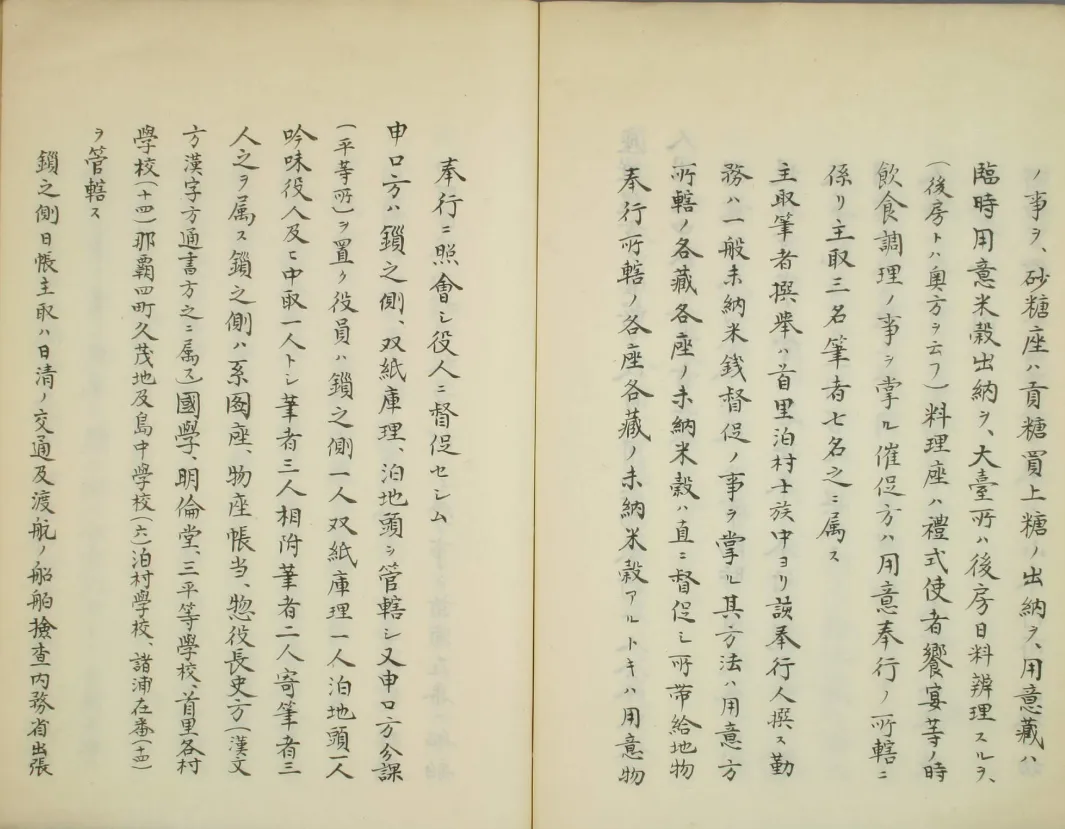 ノ事ヲ、砂糖座ハ貢糖買上糖ノ出納ヲ、用意藏ハ
臨時用意米穀出納ヲ、大臺所ハ後房日料辨理スルヲ、
(後房トハ奥方ヲ云フ)料理座ハ禮式使者饗宴等ノ時
飲食調理ノ事ヲ掌ル催促方ハ用意奉行ノ所轄ニ
係リ主取三名筆者七名之ニ属ス
主取筆者撰挙ハ首里泊村士族中ヨリ該奉行人撰ス勤
務ハ一般未納米銭督促ノ事ヲ掌ル其方法ハ用意方
所轄ノ各藏各座ノ未納米穀ハ直ニ督促シ所帶給地物
奉行所轄ノ各座各藏ノ未納米穀アルトキハ用意物
奉行ニ照會シ役人ニ督促セシム
申口方ハ鎖之側、双紙庫理、泊地頭ヲ管轄シ又申口方分課
(平等所)ヲ置ク役員ハ鎖之側一人双紙庫理一人泊地頭一人
吟味役人及ヒ中取一人トシ筆者三人相附筆者二人寄筆者三
人之ヲ属ス鎖之側ハ系圖座、物座帳当、惣役長史方(漢文
方漢字方通書方之ニ属ス)國學、明倫堂、三平等學校、首里各村
學校(十四)那覇四町久茂地及島中学校(六)泊村學校、諸浦在番(十四)
ヲ管轄ス
鎖之側日帳主取ハ日清ノ交通及渡航ノ船舶撿査内務省出張